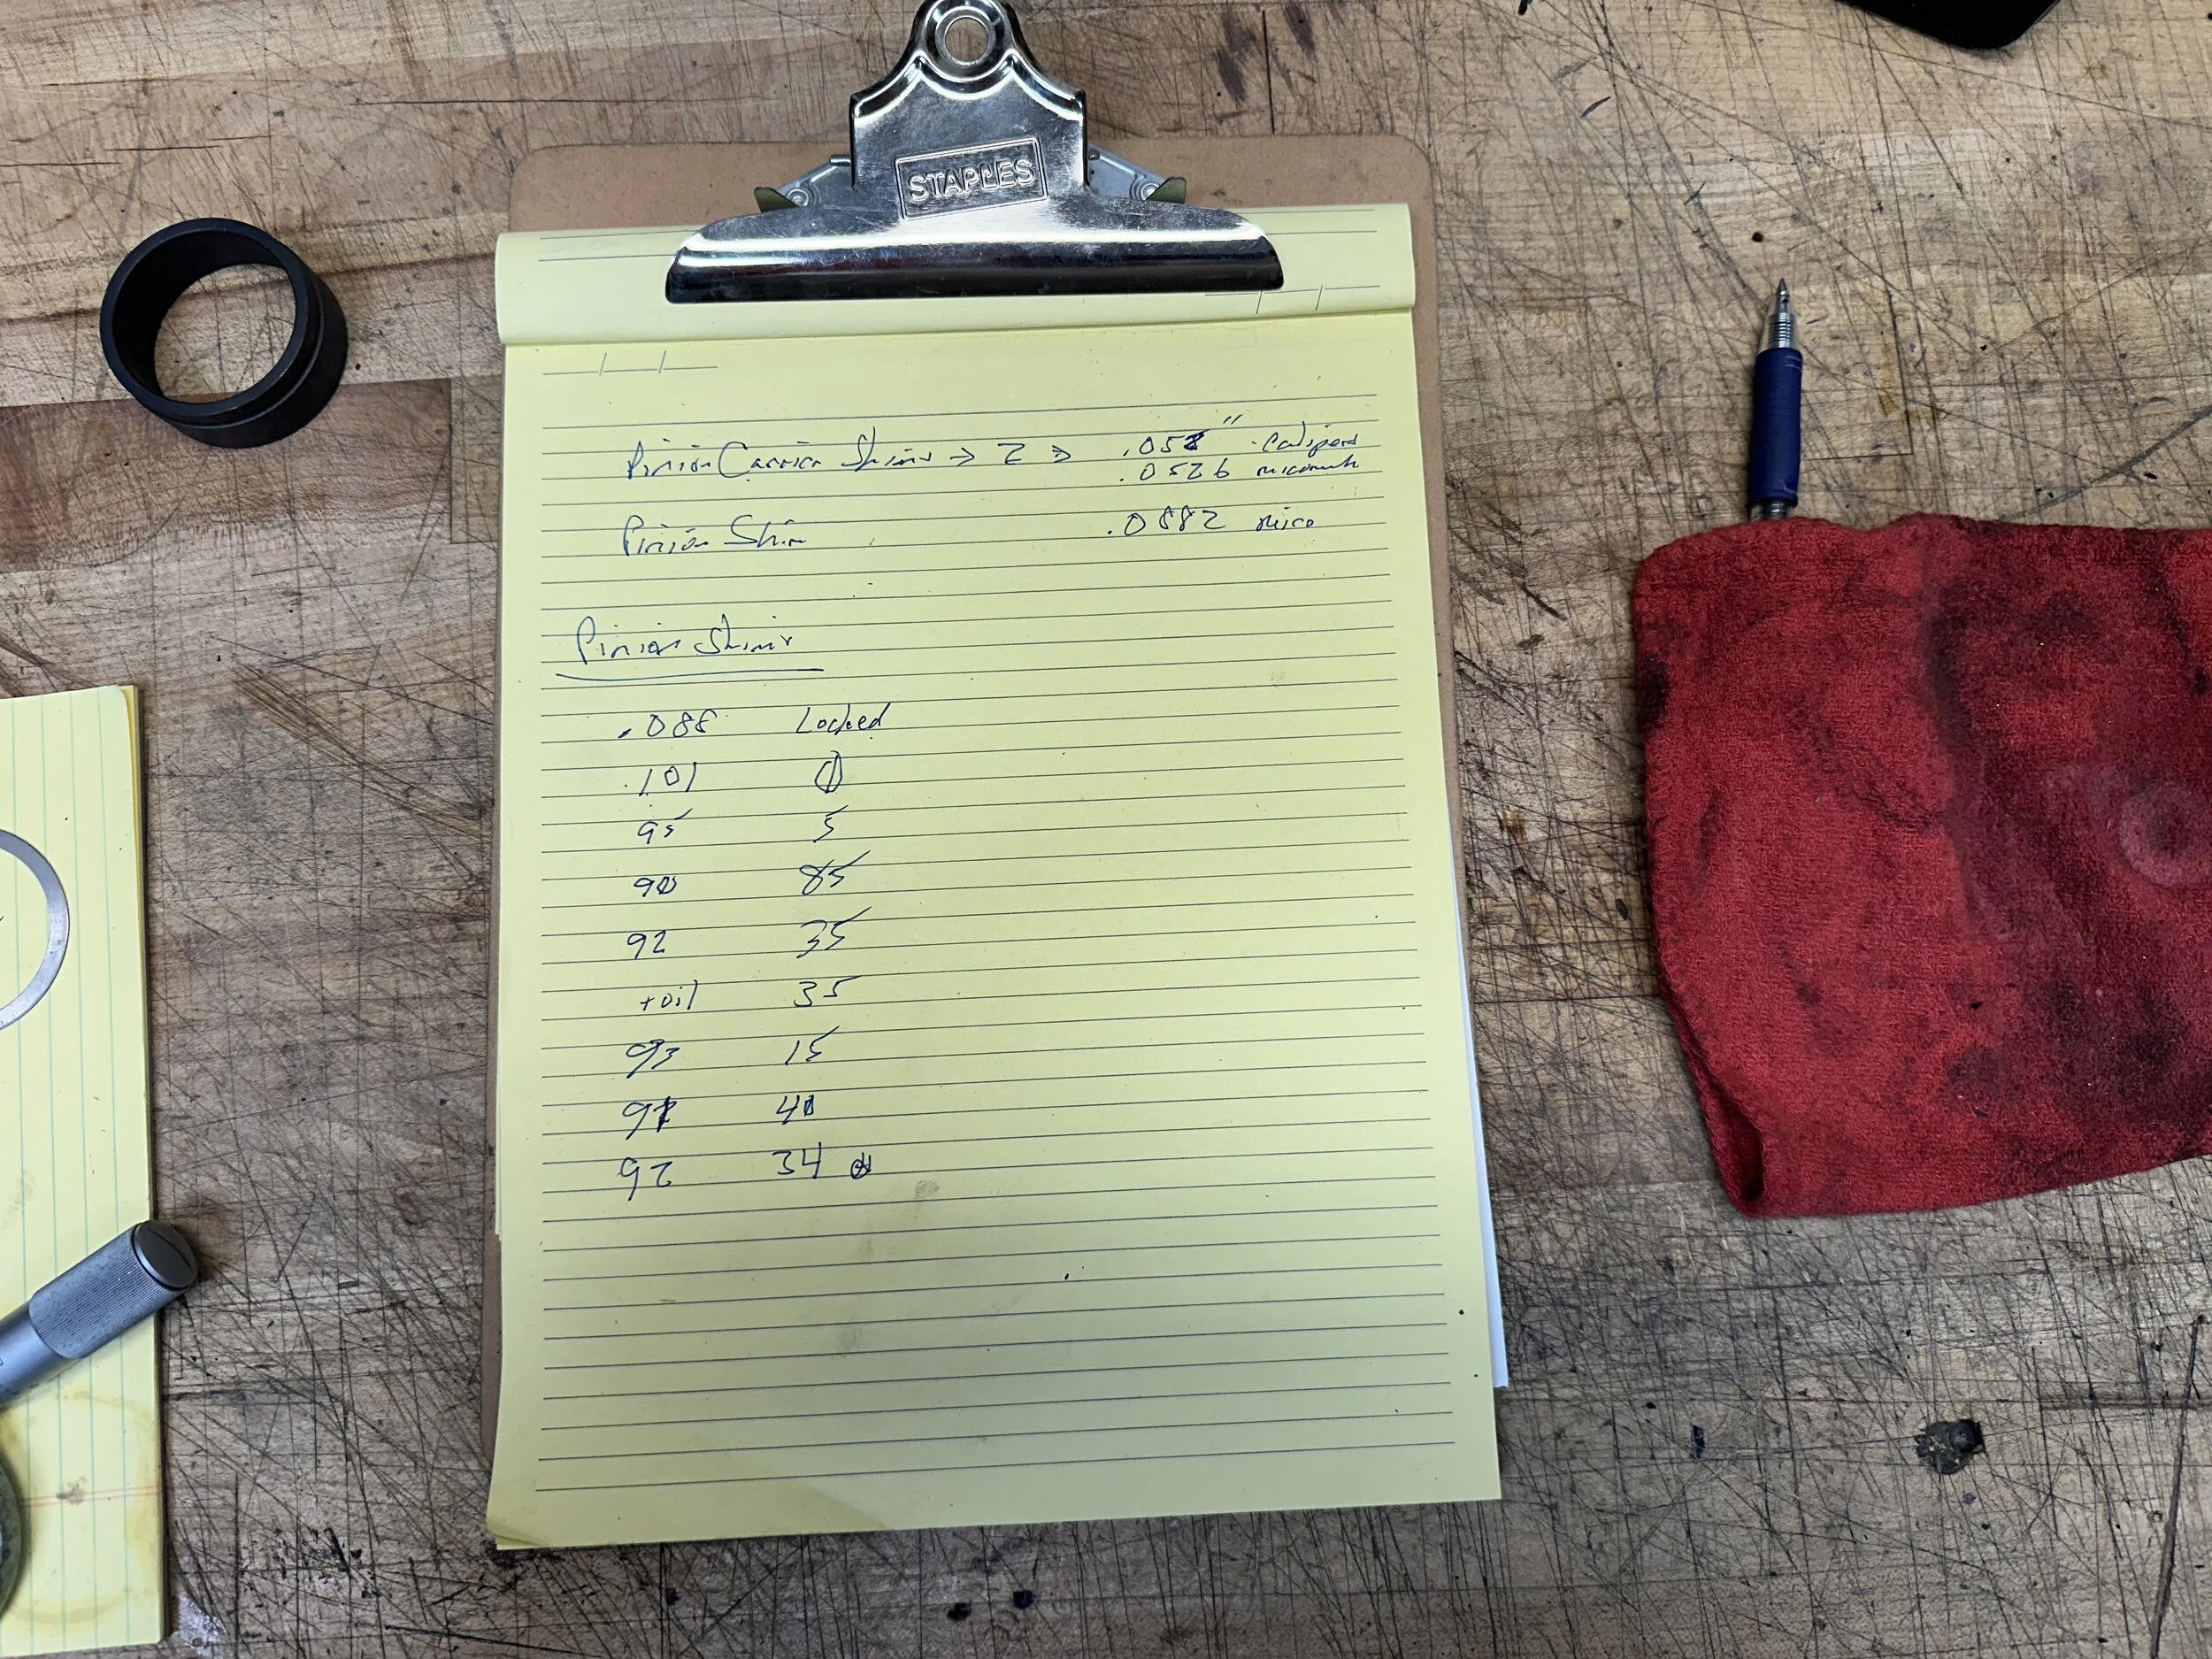 STAPLES
Pinion Carrier Shims → 2 ⇒ .052" calipers
.0526 micometer
Pinion Shim .0882 mico
Pinion Shims
.088 Locked
.101 0
95 5
90 85
92 35
+oil 35
93 15
91 40
92 34